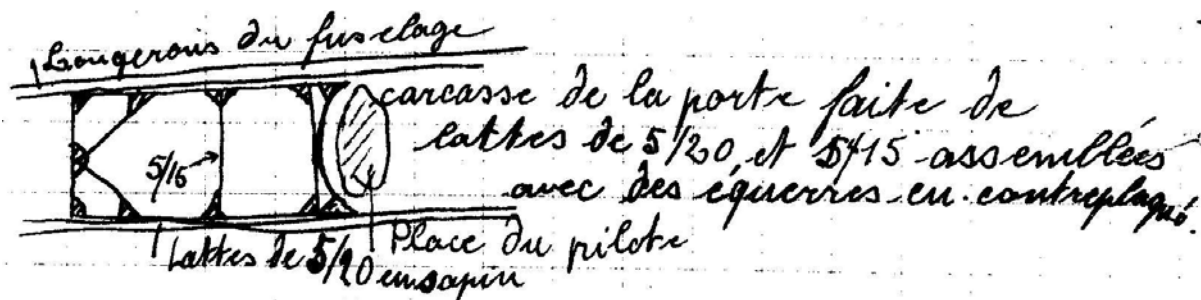 Longerons du fuselage
carcasse de la porte faite de
lattes de 5/20, et 5/15 assemblées
avec des équerres en contreplaqué.
5/15
Lattes de 5/20 en sapin
Place du pilote